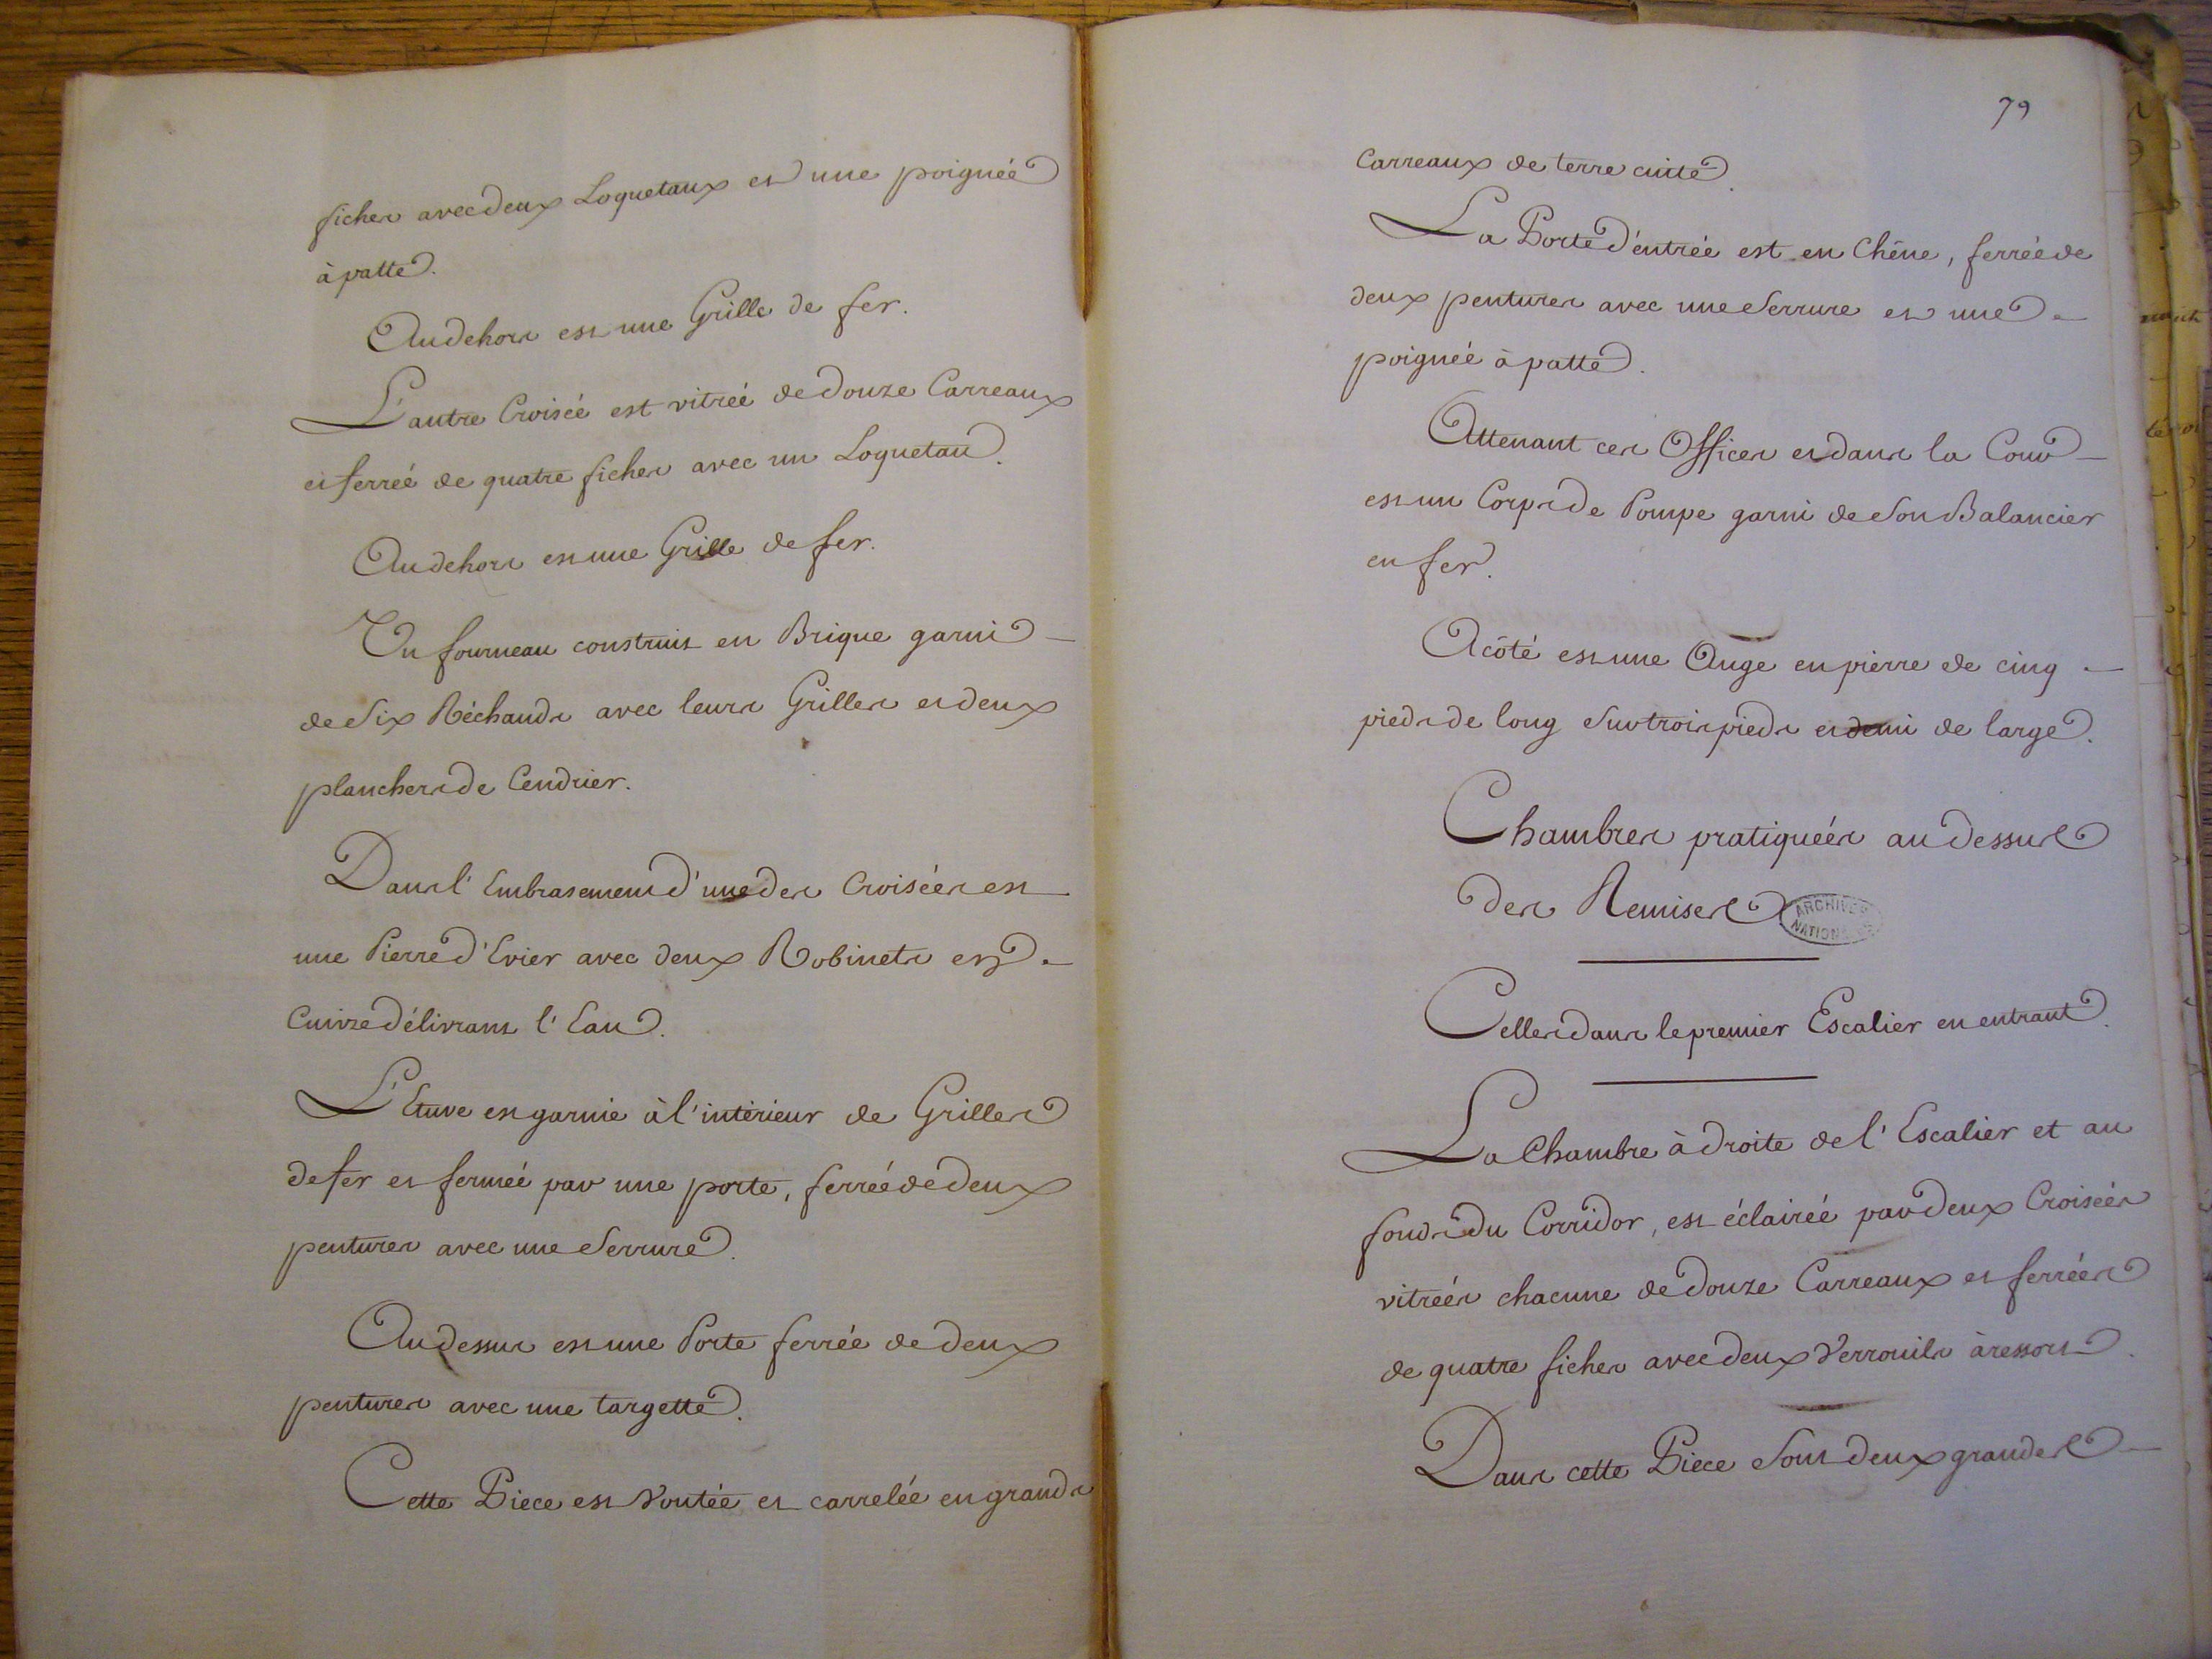 fiches avec deux Loquetaux et une poignée
à patte.
Au dehors est une Grille de fer.
L'autre Croisée est vitrée de douze Carreaux
et ferrée de quatre fiches avec un Loquetau.
Au dehors est une Grille de fer.
Un fourneau construit en Brique garni
de Six Réchauds avec leurs Grilles et deux
planchers de Cendrier.
Dans l'Embrasement d'une des Croisées est
une Pierre d'Evier avec deux Robinets en
Cuivre délivrant l'Eau.
L'Etuve est garnie à l'intérieur de Grilles
de fer et fermée par une porte, ferrée de deux
pentures avec une Serrure.
Au dessus est une Porte ferrée de deux
pentures avec une targette.
Cette Piece est Voutée et carrelée en grands
79
Carreaux de terre cuite.
La Porte d'entrée est en Chêne, ferrée de
deux pentures avec une Serrure et une
poignée à patte.
Attenant ces Offices et dans la Cour
est un Corps de Pompe garni de Son Balancier
en fer.
A côté est une Auge en pierre de cinq
pieds de long Sur trois pieds et demi de large.
Chambres pratiquées au dessus
des Remises.
ARCHIVES
NATIONALES
Celles dans le premier Escalier en entrant.
La Chambre à droite de l'Escalier et au
fonds du Corridor, est éclairée par deux Croisées
vitrées chacune de douze Carreaux et ferrées
de quatre fiches avec deux Verrouils à ressort.
Dans cette Piece Sont deux grandes